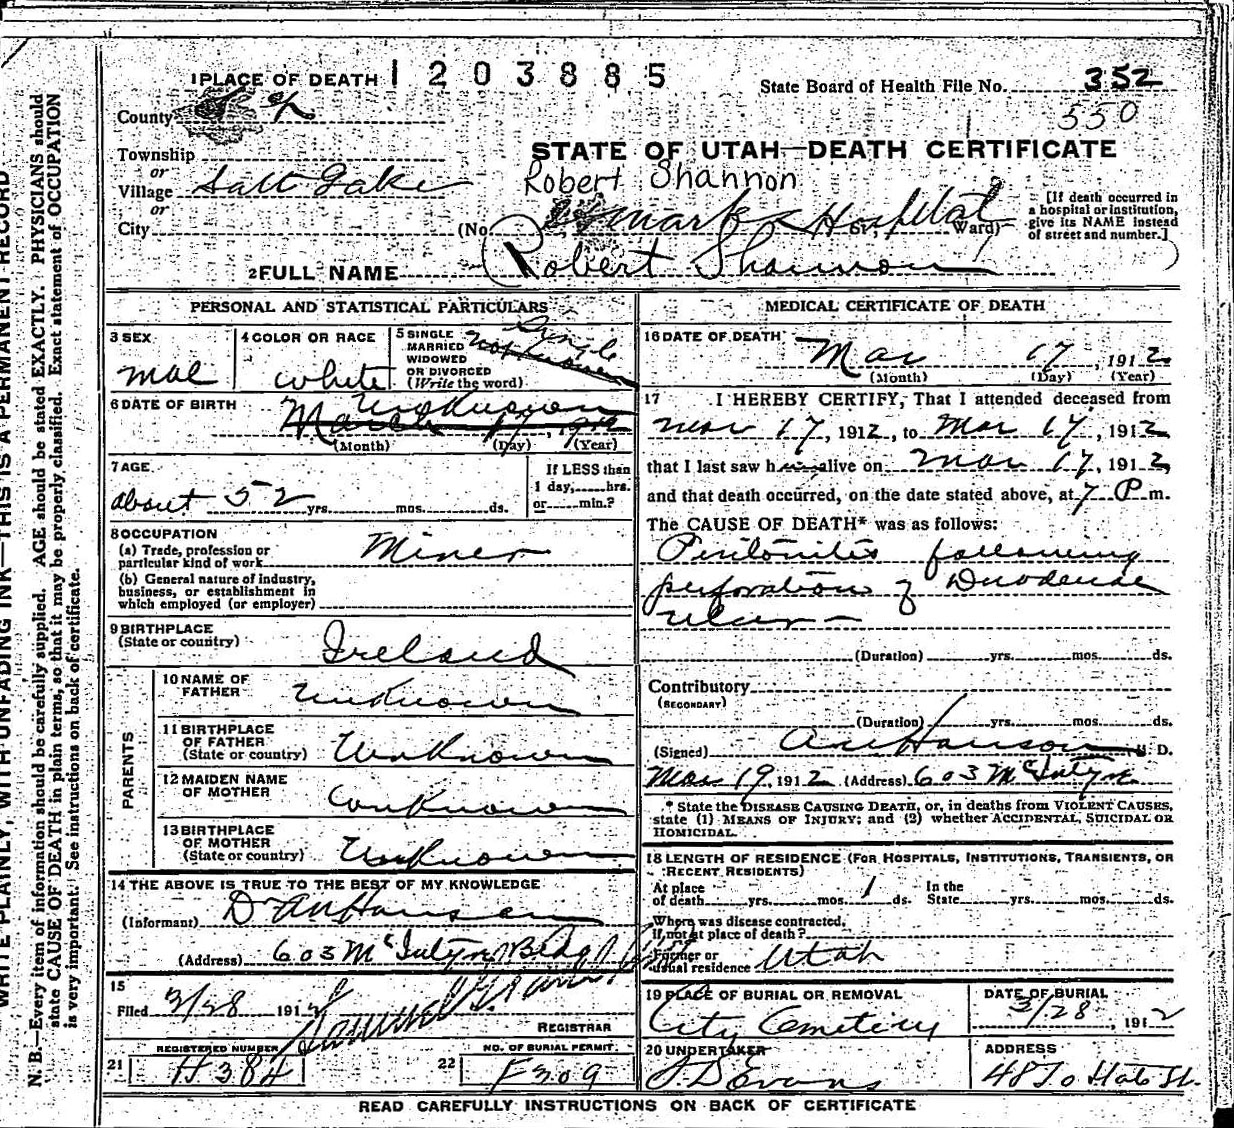 1 PLACE OF DEATH 1 2 0 3 8 8 5
State Board of Health File No. 352
550
County S L
Township
or
Village Salt Lake
or
City
STATE OF UTAH—DEATH CERTIFICATE
Robert Shannon
(No. St Marks Hospital St.; Ward)
[If death occurred in a hospital or institution, give its NAME instead of street and number.]
2 FULL NAME Robert Shannon
PERSONAL AND STATISTICAL PARTICULARS
3 SEX
mal
4 COLOR OR RACE
white
5 SINGLE
MARRIED
WIDOWED
OR DIVORCED
(Write the word)
Single
not known
6 DATE OF BIRTH unknown
March 17, 912
(Month) (Day) (Year)
7 AGE
about 52 yrs. mos. ds.
If LESS than
1 day, hrs.
or min.?
8 OCCUPATION
(a) Trade, profession or
particular kind of work Miner
(b) General nature of industry,
business, or establishment in
which employed (or employer)
9 BIRTHPLACE
(State or country) Ireland
PARENTS
10 NAME OF
FATHER unknown
11 BIRTHPLACE
OF FATHER
(State or country) Unknown
12 MAIDEN NAME
OF MOTHER Unknown
13 BIRTHPLACE
OF MOTHER
(State or country) Unknown
14 THE ABOVE IS TRUE TO THE BEST OF MY KNOWLEDGE
(Informant) Dr A N Hanson
(Address) 603 McIntyre Bldg
15
Filed 3/28 191 2
REGISTRAR
21 REGISTERED NUMBER
H 384
22 NO. OF BURIAL PERMIT
F309
MEDICAL CERTIFICATE OF DEATH
16 DATE OF DEATH
Mar 17, 1912
(Month) (Day) (Year)
17 I HEREBY CERTIFY, That I attended deceased from
Mar 17, 1912, to Mar 17, 1912
that I last saw him alive on Mar 17, 1912
and that death occurred, on the date stated above, at 7 P m.
The CAUSE OF DEATH* was as follows:
Peritonitis following
perforation of Duodenal
ulcer
(Duration) yrs. mos. ds.
Contributory
(SECONDARY)
(Duration) yrs. mos. ds.
(Signed) Hanson M. D.
Mar 19, 1912 (Address) 603 McIntyre
* State the DISEASE CAUSING DEATH, or, in deaths from VIOLENT CAUSES,
state (1) MEANS OF INJURY; and (2) whether ACCIDENTAL, SUICIDAL OR
HOMICIDAL.
18 LENGTH OF RESIDENCE (FOR HOSPITALS, INSTITUTIONS, TRANSIENTS, OR
RECENT RESIDENTS)
At place
of death yrs. mos. 1 ds. In the
State yrs. mos. ds.
Where was disease contracted,
if not at place of death?
Former or
usual residence Utah
19 PLACE OF BURIAL OR REMOVAL
City Cemetery
DATE OF BURIAL
3/28, 1912
20 UNDERTAKER
J D Evans
ADDRESS
48 So State St.
READ CAREFULLY INSTRUCTIONS ON BACK OF CERTIFICATE
WRITE PLAINLY, WITH UNFADING INK—THIS IS A PERMANENT RECORD
N. B.—Every item of information should be carefully supplied. AGE should be stated EXACTLY. PHYSICIANS should
state CAUSE OF DEATH in plain terms, so that it may be properly classified. Exact statement of OCCUPATION
is very important. See instructions on back of certificate.